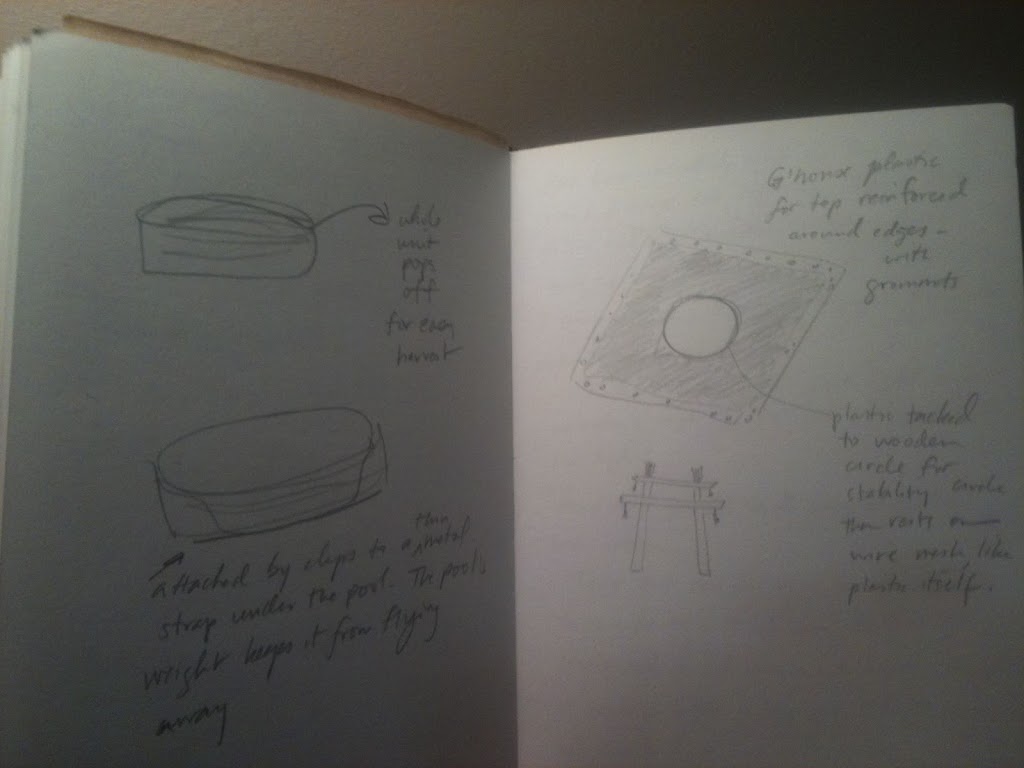 while
unit
pops
off
for easy
harvest
attached by clips to a thin metal
strap under the pool. The pool's
weight keeps it from flying
away
G'house plastic
for top reinforced
around edges -
with
grommets
plastic tacked
to wooden
circle for
stability circle
then rests on
wire mesh, like
plastic itself.